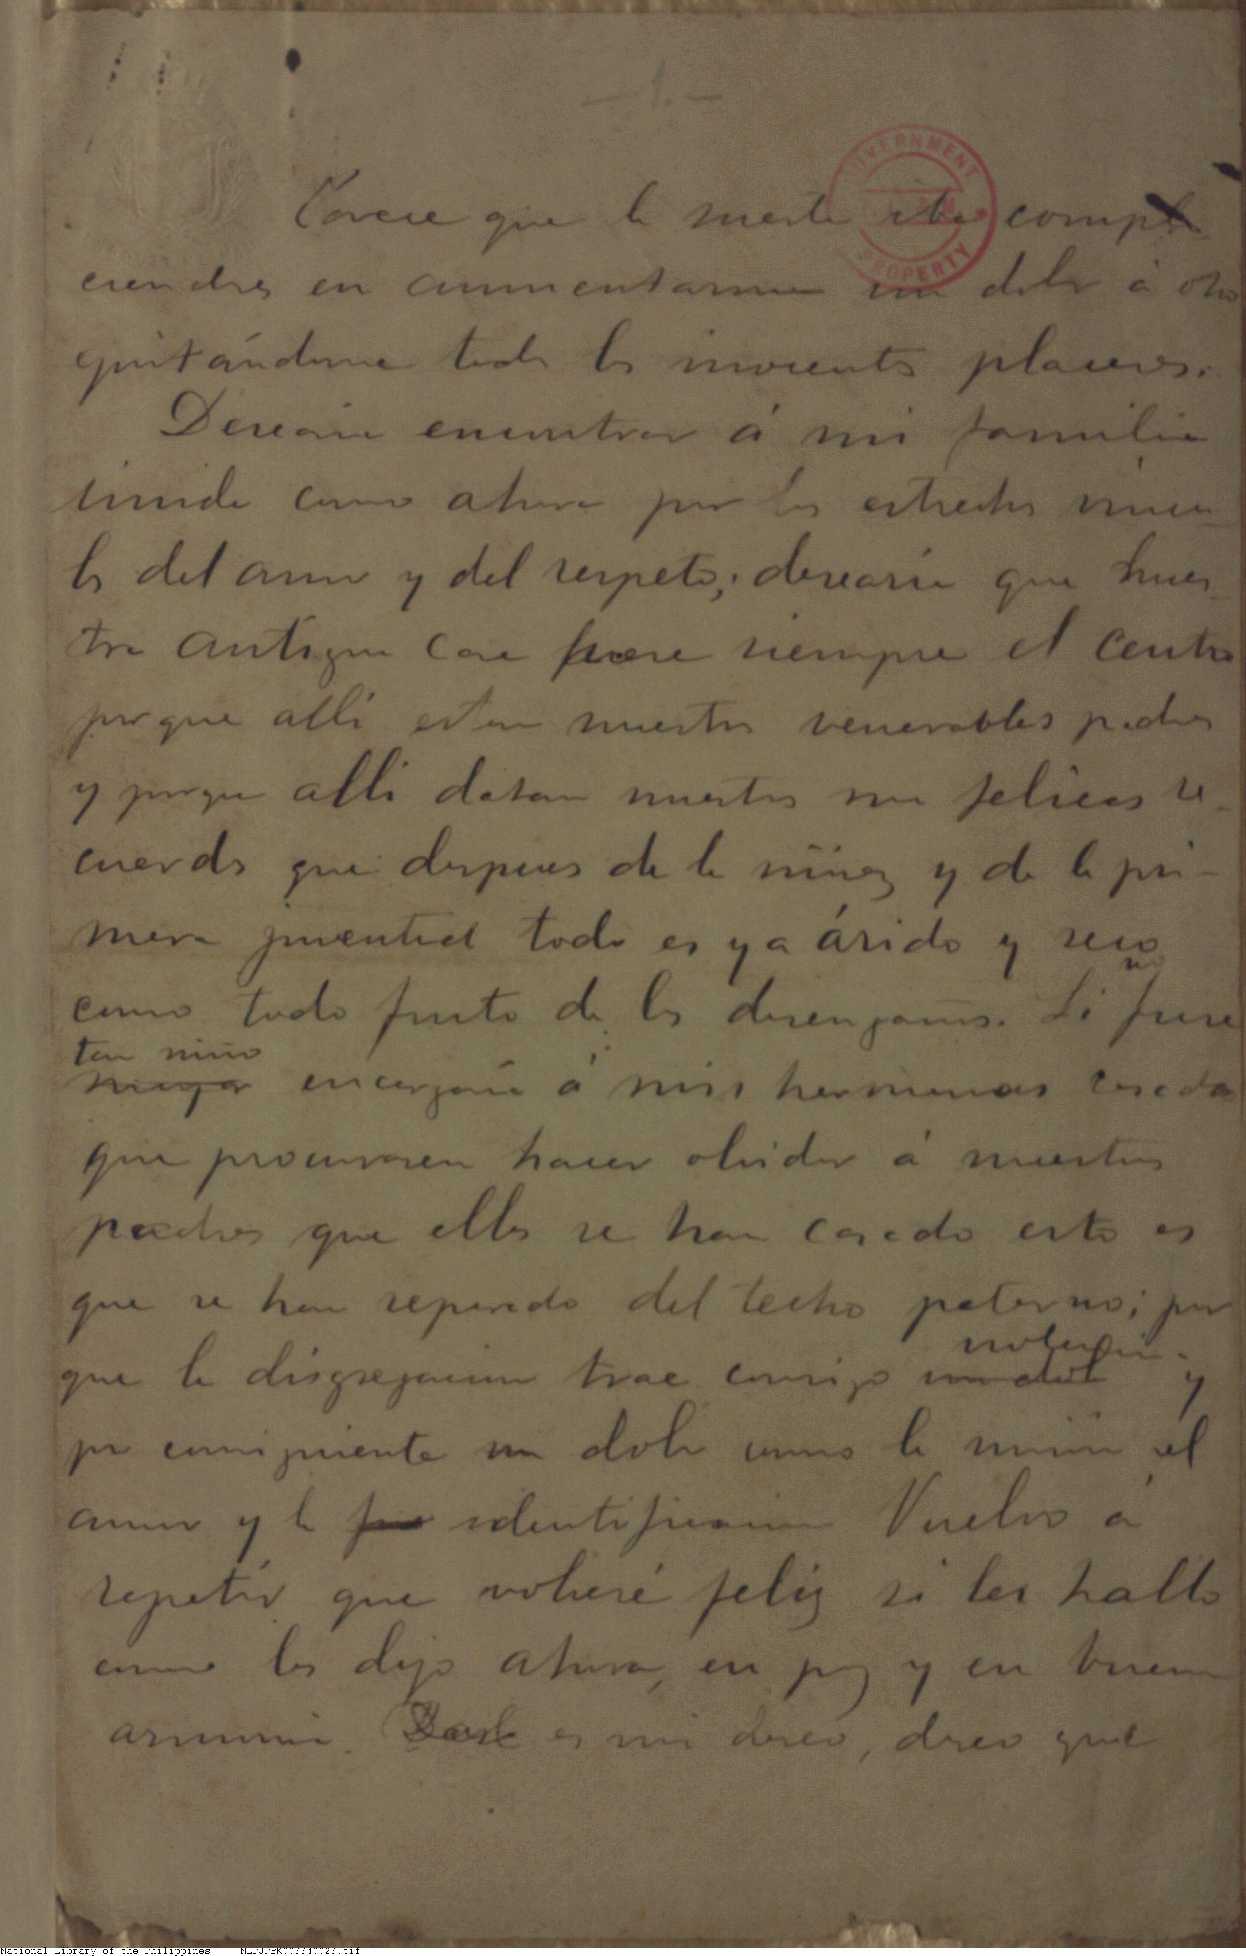 — 1. —
GOVERNMENT
PROPERTY
Parece que la suerte iba compla
ciendose en aumentarme un dolor á otro
quitándome todos los inocentes placeres.
Desearia encontrar á mi familia
unida como ahora por los estrechos víncu-
los del amor y del respeto; desearia que nues-
tra antigua casa fuese siempre el centro
porque alli estan nuestros venerables padres
y porque alli datan nuestros mas felices re-
cuerdos que despues de la niñez y de la pri-
mera juventud todo es ya árido y seco
como todo fruto de los desengaños. Si no fuese
tan niño encargaria á mis hermanas casadas
que procurasen hacer olvidar á nuestros
padres que ellas se han casado esto es
que se han separado del techo paterno; por
que la disgregacion trae consigo y
por consiguiente un dolor como la union el
amor y la identificacion Vuelvo á
repetir que volveré feliz si les hallo
como los dejo ahora, en paz y en buena
armonia. es mi deseo, deseo que
National Library of the Philippines